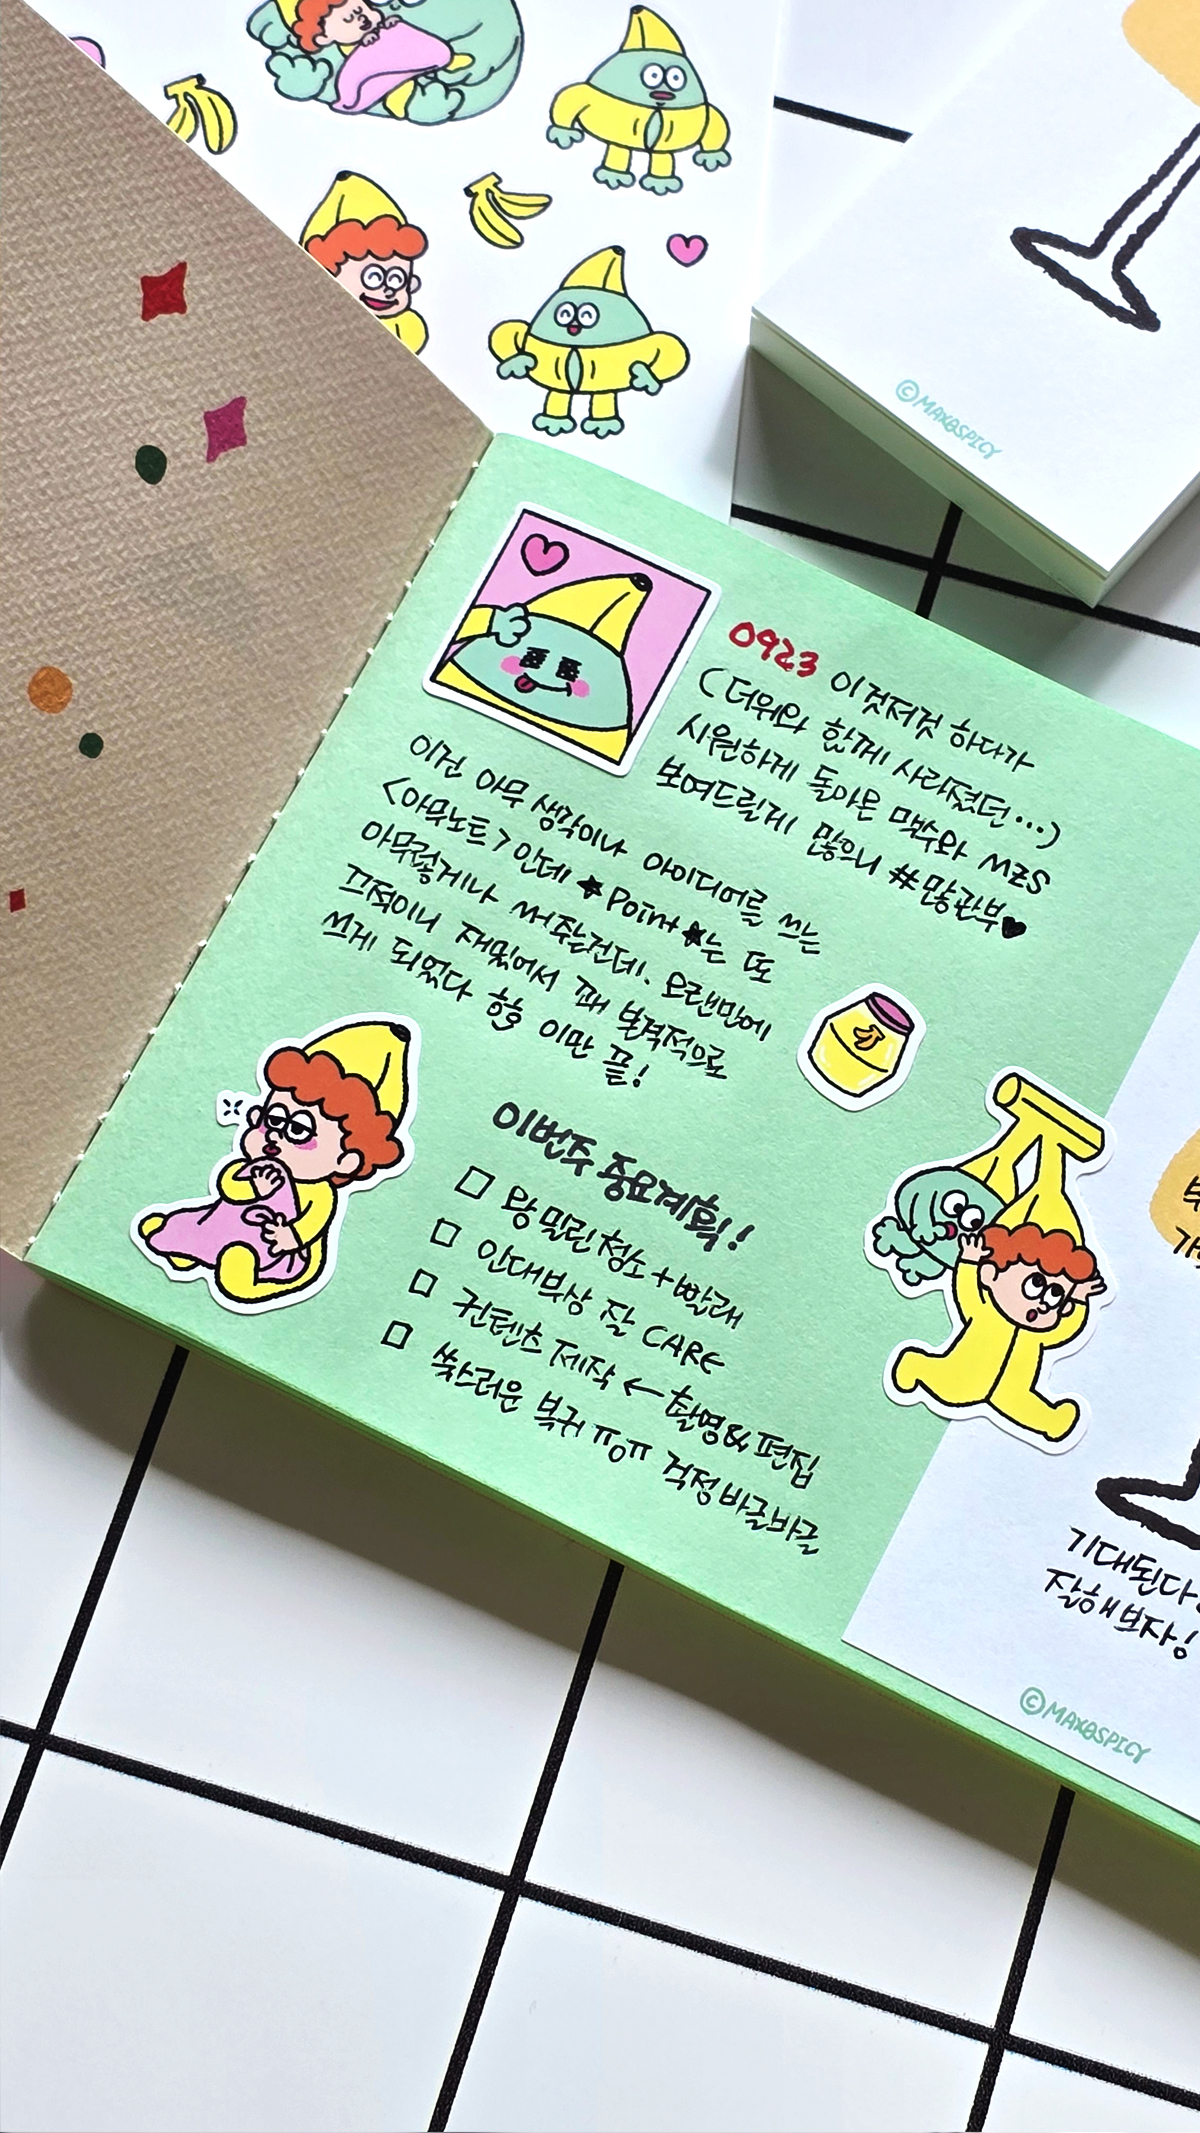 ©MAX&SPICY
0923 이것저것 하다가
(더위와 함께 사라졌던...)
시원하게 돌아온 맥수와 MZS
보여드릴게 많으니 #많관부♥
이건 아무 생각이나 아이디어를 쓰는
<아무노트>인데 ★Point★는 또
아무렇게나 써주는건데. 오랜만에
끄적이니 재밌어서 꽤 본격적으로
쓰게 되었다 힝 이만 끝!
이번주 중요계획!
□ 왕 밀린 청소+빨래
□ 인대부상 잘 CARE
□ 컨텐츠 제작 ← 촬영&편집
□ 쑥스러운 복귀 ㅠㅇㅠ 걱정 바글바글
기대된다
잘해보자!
©MAX&SPICY